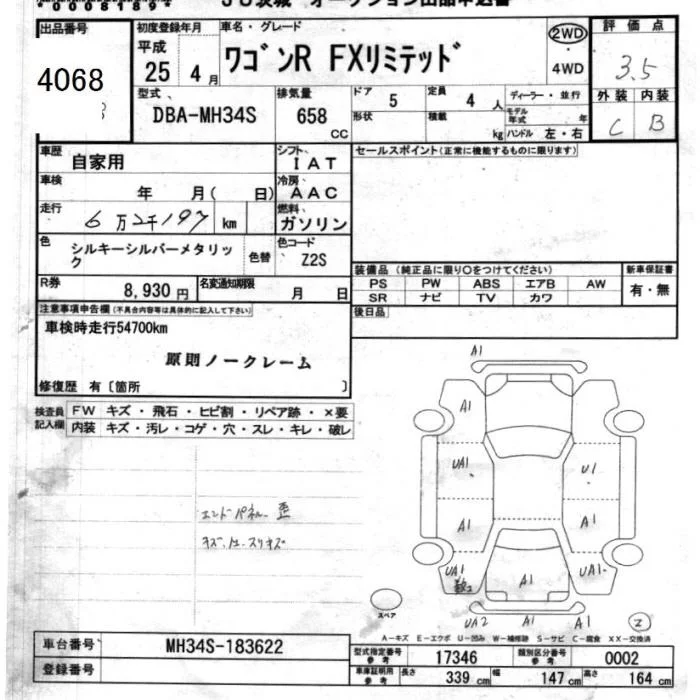 00081894 JU茨城 オークション出品申込書
出品番号 初度登録年月 車名・グレード 2WD 評価点
4068 平成 25年 4月 ワゴンR FXリミテッド 4WD 3.5
型式 排気量 ドア 5 定員 4人 ディーラー・並行 外装 内装
DBA-MH34S 658 CC 形状 積載 kg モデル年式 年 C B
ハンドル 左・右
車歴 自家用 シフト IAT セールスポイント(正常に機能するものに限ります)
車検 年 月( 日) 冷房 AAC
走行 6万2千197 km 燃料 ガソリン
色 シルキーシルバーメタリック 色替 色コード Z2S
装備品(純正品に限り○をつけてください) 新車保証書
R券 8,930円 名変通知期限 月 日 PS PW ABS エアB AW 有・無
SR ナビ TV カワ
注意事項申告欄(不具合内容等は具体的に記入して下さい) 後日品
車検時走行54700km
原則ノークレーム
修復歴 有〔箇所 〕
検査員記入欄 FW キズ・飛石・ヒビ割・リペア跡・×要
内装 キズ・汚レ・コゲ・穴・スレ・キレ・破レ
A1
A1
UA1 U1
エンドパネル歪
A1 A1
キズ、スリキズ
UA1 A1 UA1
スペア
UA2 A1 A1 2
A-キズ E-エクボ U-凹み W-補修跡 S-サビ C-腐食 XX-交換済
車台番号 MH34S-183622 型式指定番号 参考 17346 類別区分番号 参考 0002
登録番号 車庫証明用 参考 長さ 339cm 幅 147cm 高さ 164cm